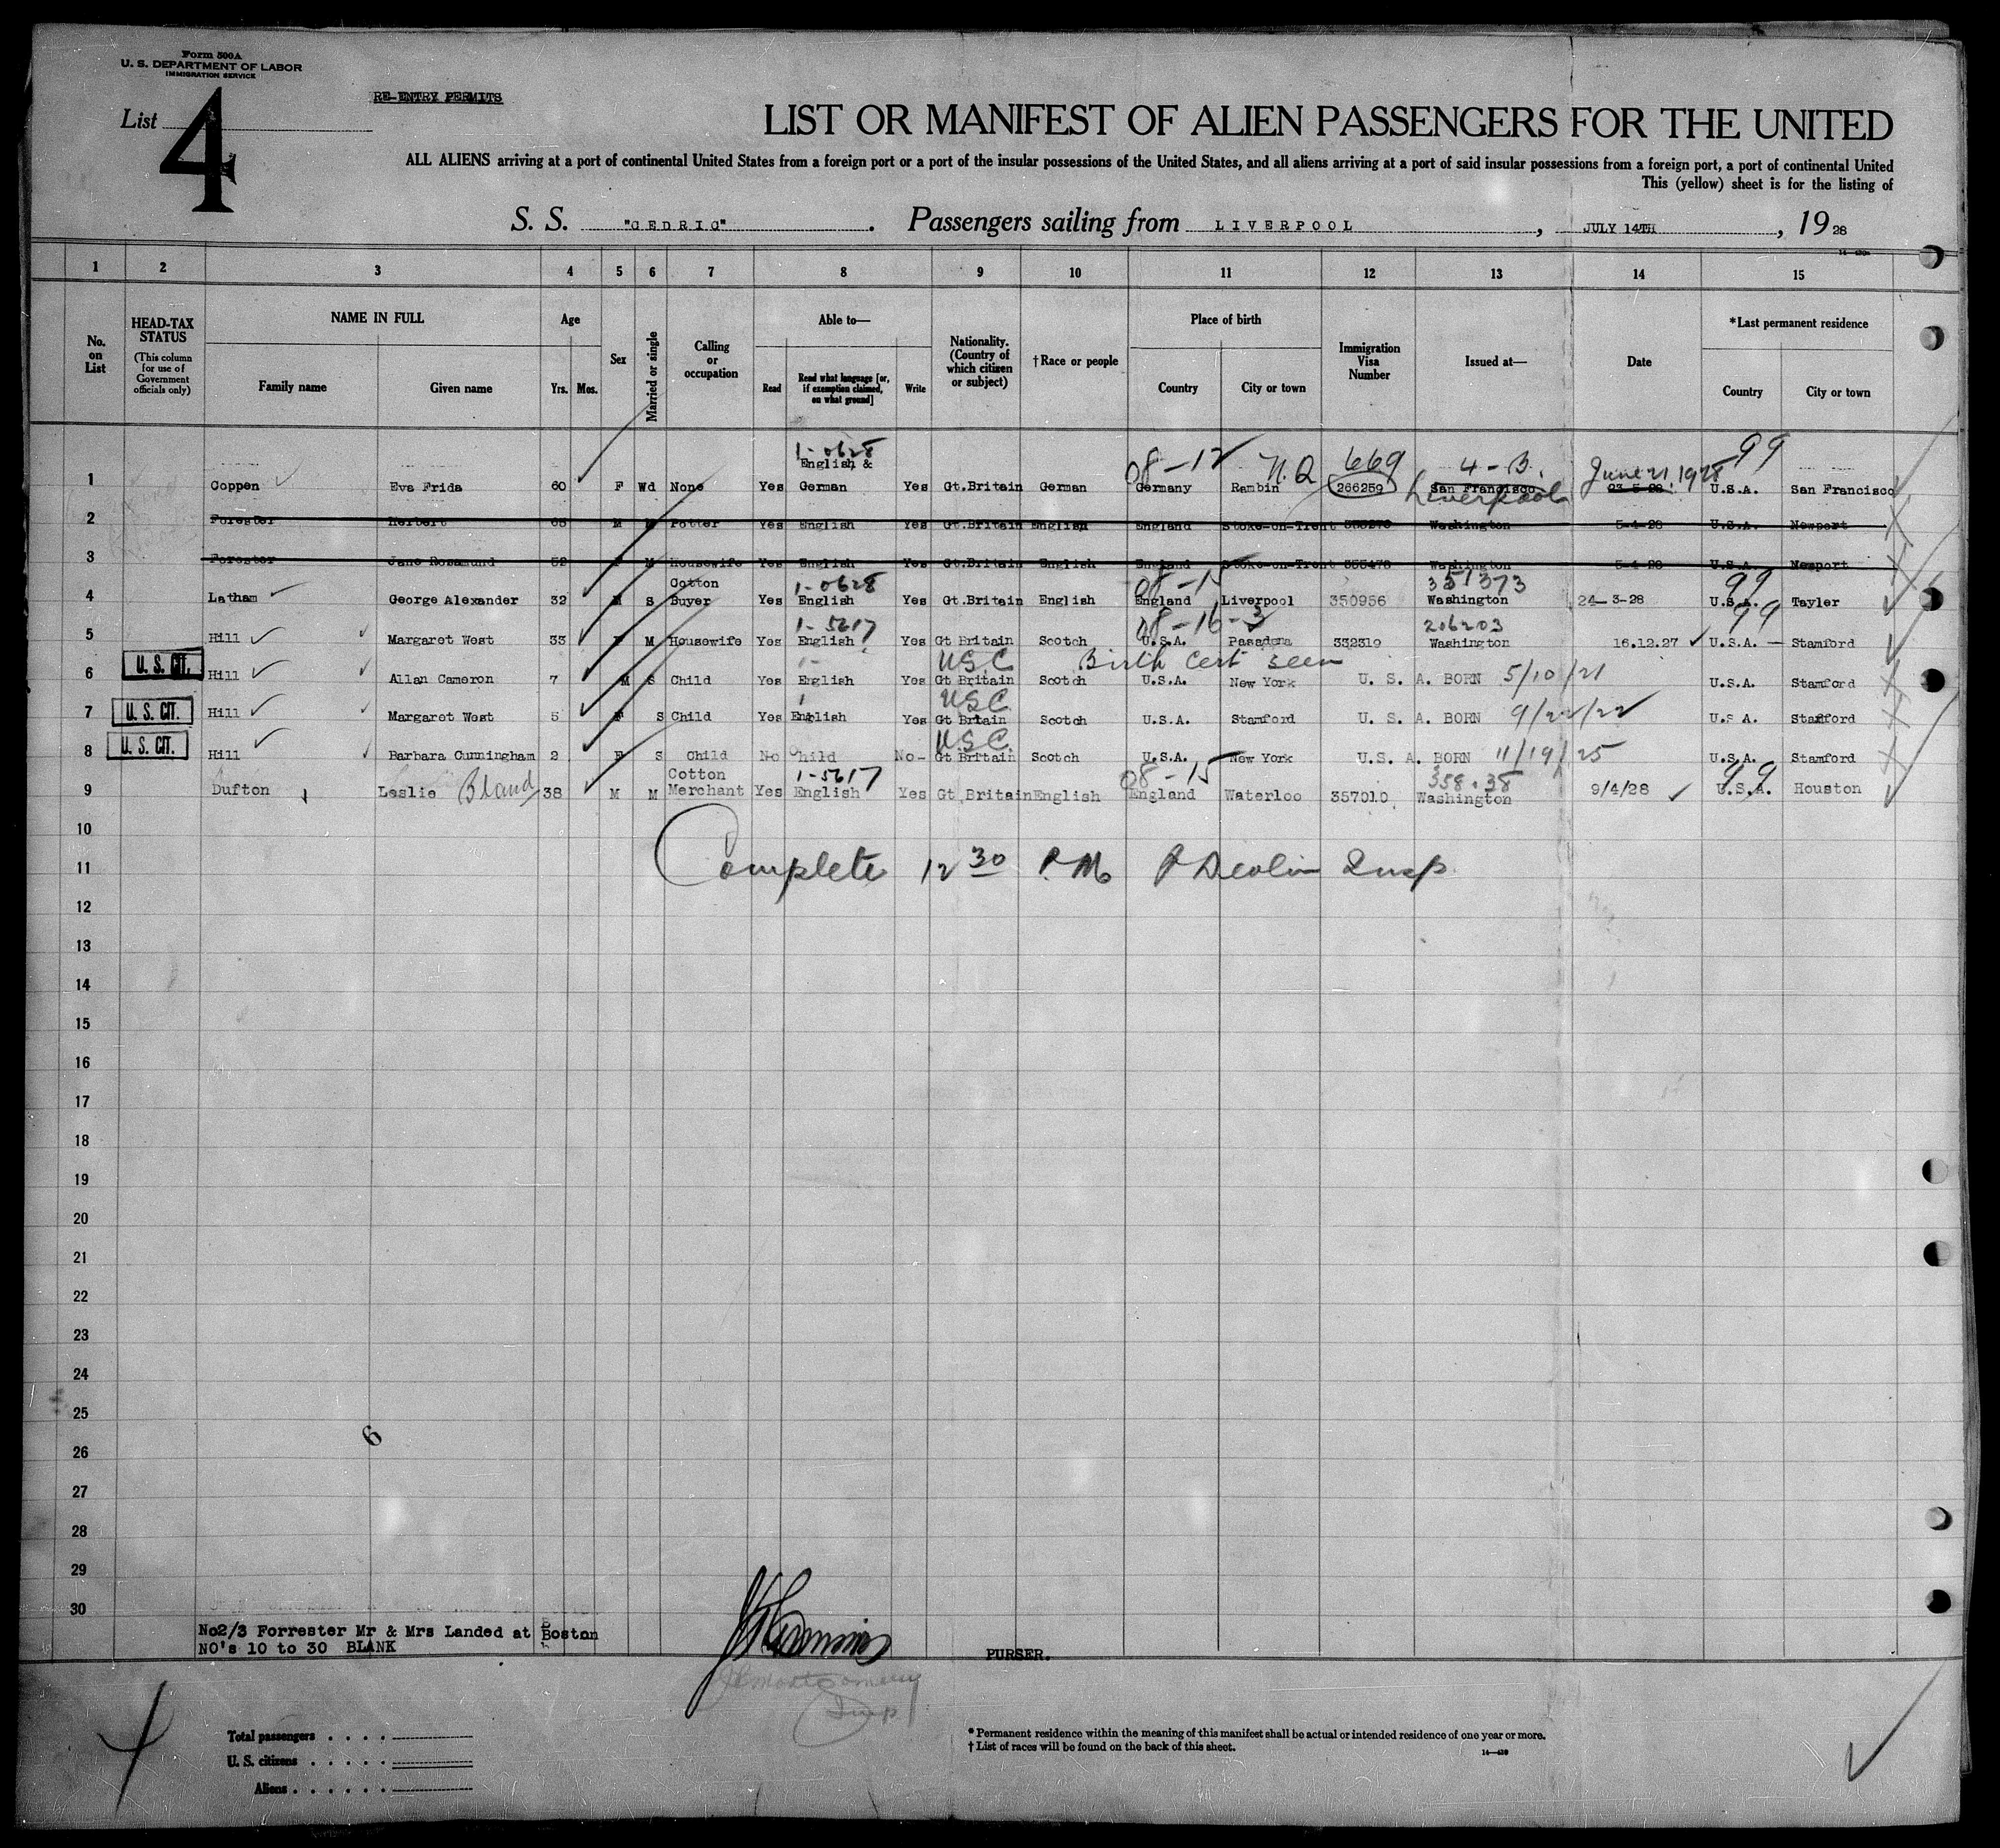 Form 500A
U. S. DEPARTMENT OF LABOR
IMMIGRATION SERVICE
RE-ENTRY PERMITS
List 4
LIST OR MANIFEST OF ALIEN PASSENGERS FOR THE UNITED
ALL ALIENS arriving at a port of continental United States from a foreign port or a port of the insular possessions of the United States, and all aliens arriving at a port of said insular possessions from a foreign port, a port of continental United
This (yellow) sheet is for the listing of
S. S. "CEDRIC". Passengers sailing from LIVERPOOL, JULY 14TH, 1928
1 2 3 4 5 6 7 8 9 10 11 12 13 14 15
No. on List
HEAD-TAX STATUS (This column for use of Government officials only)
NAME IN FULL Family name Given name
Age Yrs. Mos.
Sex
Married or single
Calling or occupation
Able to— Read Read what language [or, if exemption claimed, on what ground] Write
Nationality. (Country of which citizen or subject)
†Race or people
Place of birth Country City or town
Immigration Visa Number
Issued at—
Date
*Last permanent residence Country City or town
1-0628 08-12 N.Q 669 4-B. June 21.1928 99
1 Coppen Eva Frida 60 F Wd None Yes English & German Yes Gt.Britain German Germany Rambin 266259 San Francisco Liverpool 23-5-28 U.S.A. San Francisco
2 Forester Herbert 65 M M Potter Yes English Yes Gt.Britain English England Stoke-on-Trent Washington 5-4-28 U.S.A. Newport
3 Forester Jane Rosamund 52 F M Housewife Yes English Yes Gt.Britain English England Stoke-on-Trent 355478 Washington 5-4-28 U.S.A. Newport
1-0628 08-15 351373 99
4 Latham George Alexander 32 M S Cotton Buyer Yes English Yes Gt.Britain English England Liverpool 350956 Washington 24-3-28 U.S.A. Tayler
1-5617 08-16-3 206203 99
5 Hill Margaret West 33 F M Housewife Yes English Yes Gt Britain Scotch U.S.A. Pasadena 332319 Washington 16.12.27 U.S.A. — Stamford
U. S. CIT. 1- USC Birth Cert seen
6 Hill Allan Cameron 7 M S Child Yes English Yes Gt Britain Scotch U.S.A. New York U. S. A. BORN 5/10/21 U.S.A. Stamford
U. S. CIT. 1 USC
7 Hill Margaret West 5 F S Child Yes English Yes Gt Britain Scotch U.S.A. Stamford U. S. A. BORN 9/22/22 U.S A. Stamford
U. S. CIT. U.S.C.
8 Hill Barbara Cunningham 2 F S Child No Child No- Gt Britain Scotch U.S.A. New York U.S. A. BORN 11/19/25 U.S.A. Stamford
1-5617 08-15 358.38 99
9 Dufton Leslie Bland 38 M M Cotton Merchant Yes English Yes Gt.Britain English England Waterloo 357010 Washington 9/4/28 U.S.A. Houston
10
11 Complete 12 30 P.M. P Devlin Insp.
12
13
14
15
16
17
18
19
20
21
22
23
24
25
6
26
27
28
29
30
No2/3 Forrester Mr & Mrs Landed at Boston
NO's 10 to 30 BLANK
PURSER.
Montgomery
Insp
Total passengers . . . .
U. S. citizens . . . . .
Aliens . . . . . .
* Permanent residence within the meaning of this manifest shall be actual or intended residence of one year or more.
† List of races will be found on the back of this sheet.
14—430